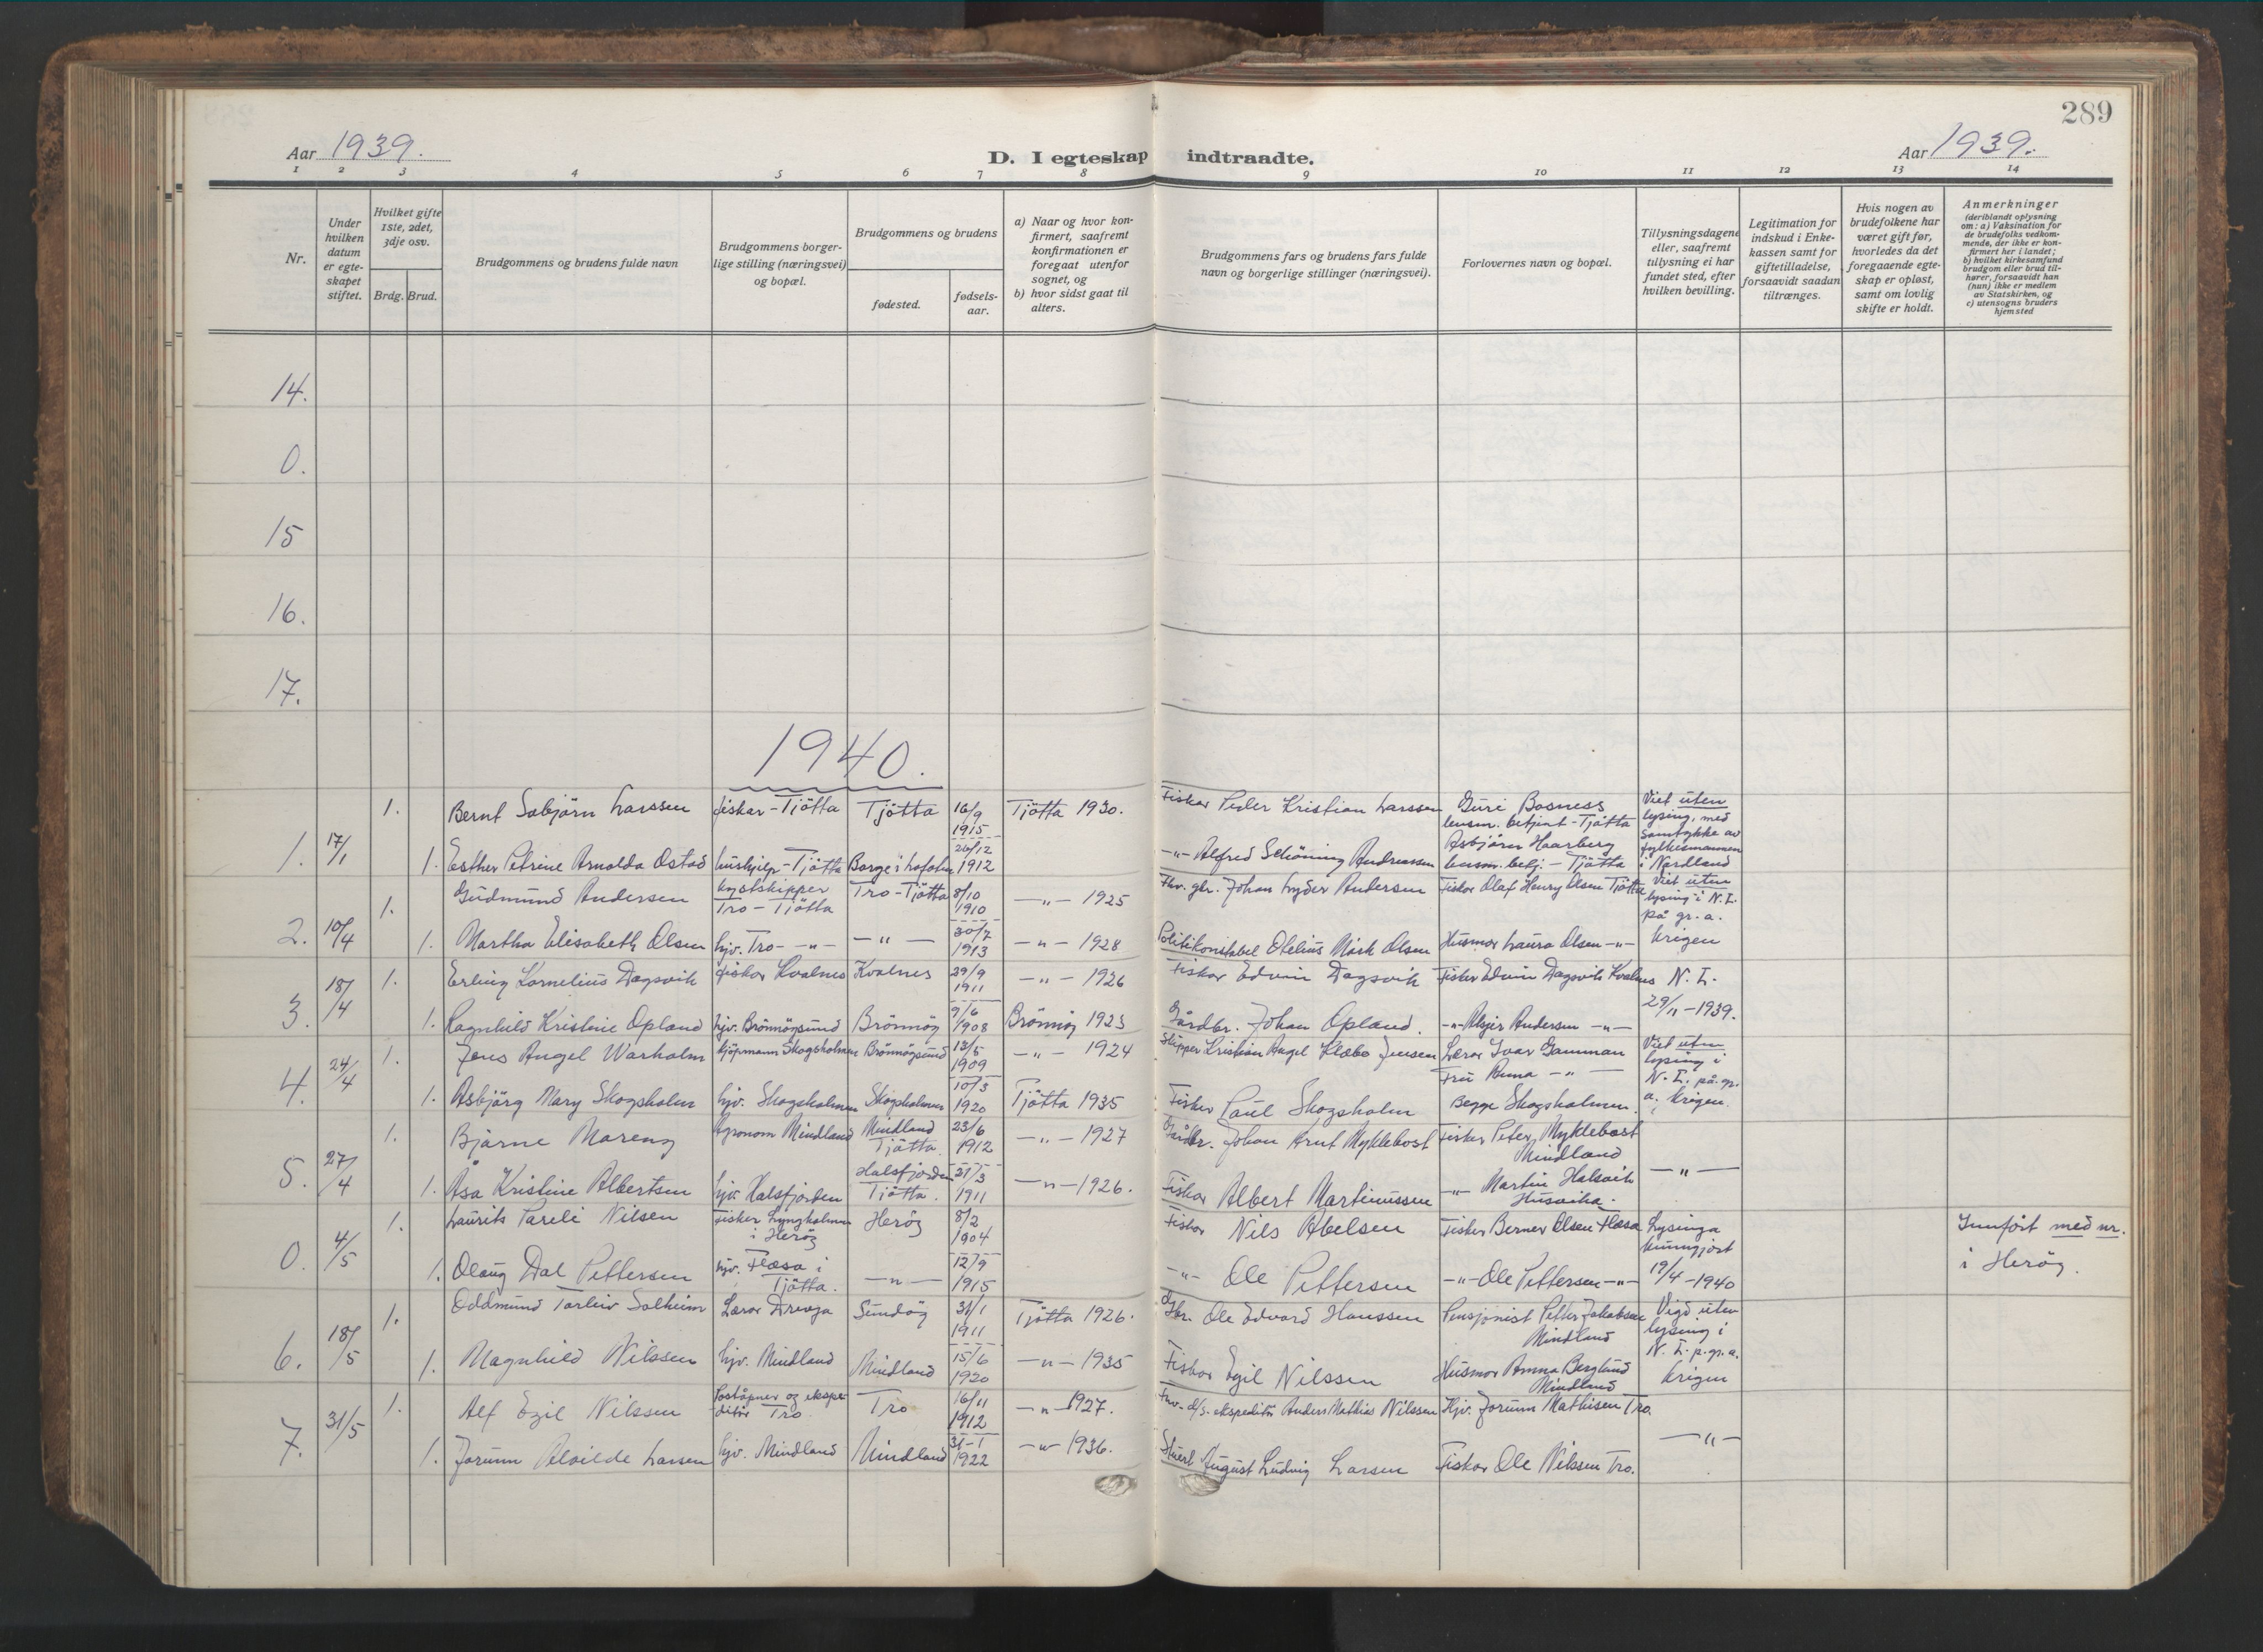 289
Aar 1939.
D. I egteskap indtraadte.
Aar 1939.
1 2 3 4 5 6 7 8 9 10 11 12 13 14
Nr.
Under
hvilken
datum
er egte-
skapet
stiftet.
Hvilket gifte
1ste, 2det,
3dje osv.
Brdg. Brud.
Brudgommens og brudens fulde navn
Brudgommens borger-
lige stilling (næringsvei)
og bopæl.
Brudgommens og brudens
fødested.
fødsels-
aar.
a) Naar og hvor kon-
firmert, saafremt
konfirmationen er
foregaat utenfor
sognet, og
b) hvor sidst gaat til
alters.
Brudgommens fars og brudens fars fulde
navn og borgerlige stillinger (næringsvei).
Forlovernes navn og bopæl.
Tillysningsdagene
eller, saafremt
tillysning ei har
fundet sted, efter
hvilken bevilling.
Legitimation for
indskud i Enke-
kassen samt for
giftetilladelse,
forsaavidt saadan
tiltrænges.
Hvis nogen av
brudefolkene har
været gift før,
hvorledes da det
foregaaende egte-
skap er opløst,
samt om lovlig
skifte er holdt.
Anmerkninger
(deriblandt oplysning
om: a) Vaksination for
de brudefolks vedkom-
mende, der ikke er kon-
firmert her i landet;
b) hvilket kirkesamfund
brudgom eller brud til-
hører, forsaavidt han
(hun) ikke er medlem
av Statskirken, og
c) utensogns bruders
hjemsted
14.
0.
15
16.
17.
1940.
1. 17/1
1. Bernt Sabjörn Larssen fiskar - Tjötta Tjötta 16/9 1915 Tjötta 1930. Fisker Peder Kristian Larssen Guri Bosness lensm. betjent - Tjötta
Viet uten lysing, med samtykke av fylkesmannen i Nordland
1. Esther Petrine Arnolda Ostad hushjelp - Tjötta Borge i Lofoten 26/12 1912 -"- Alfred Schöning Andreassen Asbjörn Haarberg lensm. betj. - Tjötta
2. 10/4
1. Gudmund Andersen kystskipper Tro - Tjötta Tro - Tjötta 8/10 1910 -"- 1925 Fhv. gbr. Johan Lyder Andersen Fisker Olaf Henry Olsen Tjötta
Viet uten lysing i N.L. på gr. a. krigen
1. Martha Elisabeth Olsen hjv. Tro -"- -"- 30/7 1913 -"- 1928 Politikonstabel Otelius Mørk Olsen Husmor Laura Olsen -"-
3. 18/4
1. Erling Kornelius Dagsvik fisker Kvalnes Kvalnes 29/9 1911 -"- 1926 Fisker Edvin Dagsvik Fisker Edvin Dagsvik Kvalnes N. L.
29/11 - 1939.
1. Ragnhild Kristine Opland hjv. Brönnöysund Brönnöy 9/6 1908 Brönnöy 1923 Gårdbr. Johan Opland. -"- Asgjer Andersen -"-
4. 24/4
1. Jens Angel Warholm kjöpmann Skogsholmen Brönnöysund 13/5 1909 -"- 1924 Skipper Kristian Angel Klæbo Jensen Lærer Ivar Gamman
Fru Anna -"-
Begge Skogsholmen.
Viet uten lysing i N. L. på. gr. a. krigen.
1. Asbjörg Mary Skogsholm hjv. Skogsholmen Skogsholmen 10/3 1920 Tjötta 1935 Fisker Paul Skogsholm
5. 27/4
1. Bjarne Mareng Agronom Mindland Mindland Tjötta. 23/6 1912 -"- 1927 Gårdbr. Johan Arnt Myklebost Fisker Peter Myklebost Mindland
-"-
1. Åsa Kristine Albertsen hjv. Halsfjorden Halsfjorden Tjötta. 21/3 1911 -"- 1926. Fisker Albert Martinussen -"- Martin Halsvik Husvika.
0. 4/5
1. Laurits Pareli Nilsen Fisker Lyngholmen i Heröy Heröy 8/2 1904 Fisker Nils Abelsen Fisker Berner Olsen Flæsa Lysinga kunngjort 19/4 - 1940
Innført med nr. i Heröy.
1. Olaug Dal Pettersen hjv. Flæsa i Tjötta. -"- 12/9 1915 -"- Ole Pettersen -"- Ole Pettersen -"-
6. 18/5
1. Oddmund Torleiv Solheim Lærer Drevja Sundöy 31/1 1911 Tjötta 1926. Gbr. Ole Edvard Hanssen Pensjonist Petter Jakobsen Mindland
Vigd uten lysing i N. L. p. gr. a. krigen
1. Magnhild Nilssen hjv. Mindland Mindland 15/6 1920 -"- 1935 Fisker Egil Nilssen Husmor Anna Berglund Mindland
7. 31/5
1. Alf Egil Nilssen Poståpner og ekspeditör Tro Tro 16/11 1912 -"- 1927. Fhv. d/s. ekspeditör Anders Mathias Nilssen Hjv. Jorunn Mathisen Tro.
-"-
1. Jorunn Alvilde Larsen hjv. Mindland Mindland 31-1 1922 -"- 1936. Stuert August Ludvig Larsen Fisker Ole Nilssen Tro.